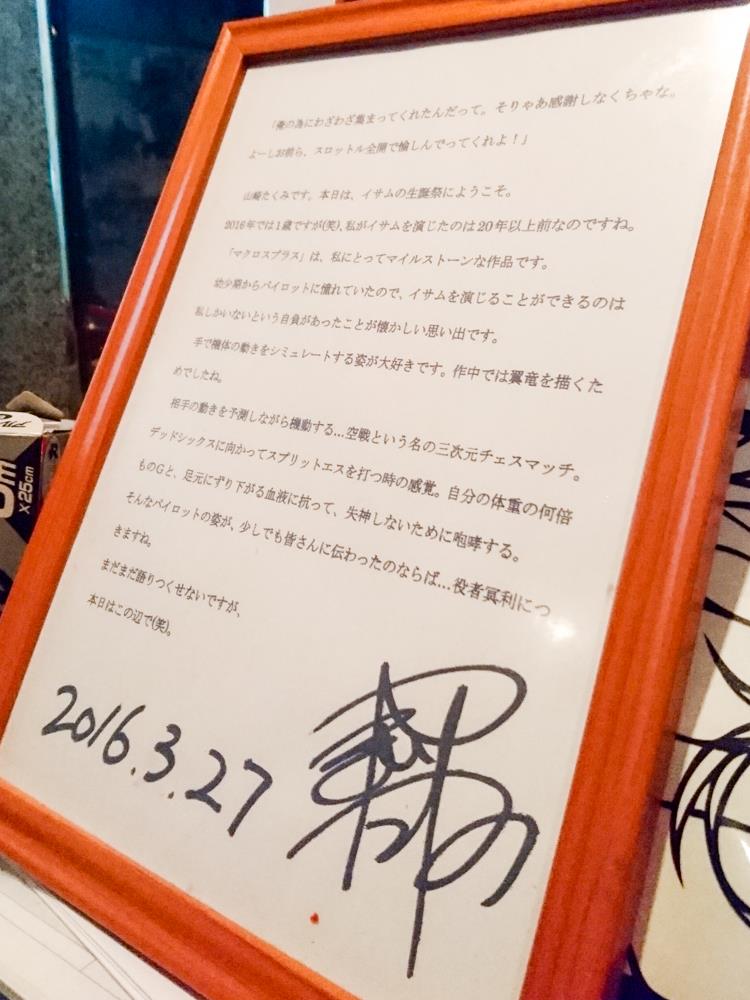 「俺の為にわざわざ集まってくれたんだって。そりゃあ感謝しなくちゃな。
よーしお前ら、スロットル全開で愉しんでってくれよ！」
山崎たくみです。本日は、イサムの生誕祭にようこそ。
2016年では1歳ですが(笑)、私がイサムを演じたのは20年以上前なのですね。
「マクロスプラス」は、私にとってマイルストーンな作品です。
幼少期からパイロットに憧れていたので、イサムを演じることができるのは
私しかいないという自負があったことが懐かしい思い出です。
手で機体の動きをシミュレートする姿が大好きです。作中では翼竜を描くた
めでしたね。
相手の動きを予測しながら機動する…空戦という名の三次元チェスマッチ。
デッドシックスに向かってスプリットエスを打つ時の感覚。自分の体重の何倍
ものGと、足元にずり下がる血液に抗って、失神しないために咆哮する。
そんなパイロットの姿が、少しでも皆さんに伝わったのならば…役者冥利につ
きますね。
まだまだ語りつくせないですが、
本日はこの辺で(笑)。
2016.3.27
m
×25cm